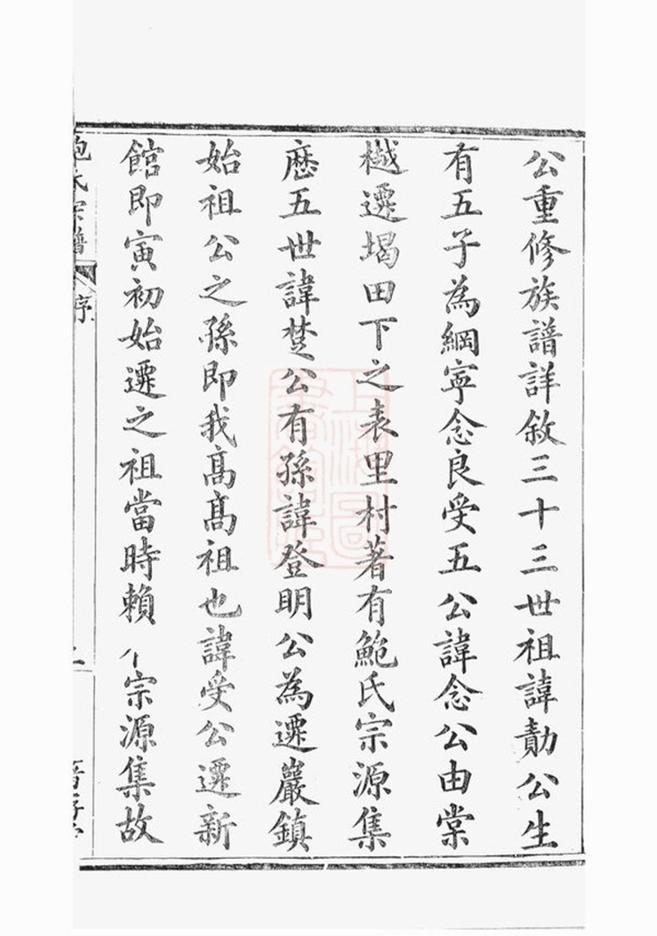 公重修族譜詳敘三十三世祖諱勣公生
有五子為綱寧念良受五公諱念公由棠
樾遷堨田下之表里村著有鮑氏宗源集
歷五世諱楚公有孫諱登明公為遷巖鎮
始祖公之孫即我高高祖也諱受公遷新
館即寅初始遷之祖當時賴 宗源集故
鮑氏宗譜 序